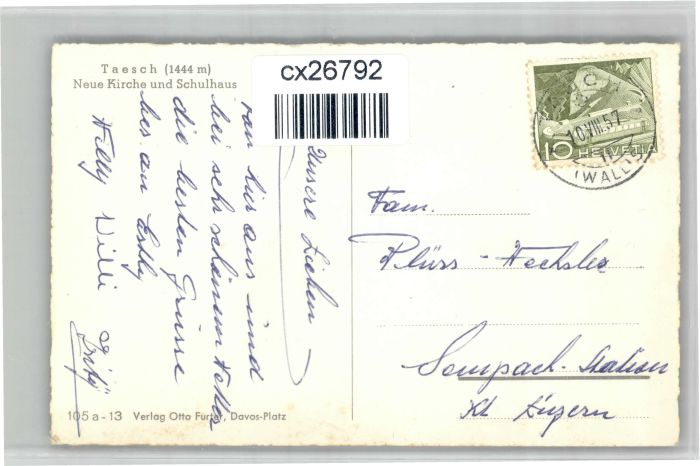 Taesch (1444 m)
Neue Kirche und Schulhaus
cx26792
Unsere Lieben
von hier aus sind
bei sehr schönem Wetter
die besten Grüsse
her an
Willi
105 a - 13 Verlag Otto Furter, Davos-Platz
10.VIII.57
10 HELVETIA
(WALL
Fam.
Sempach-Station
Kt Luzern